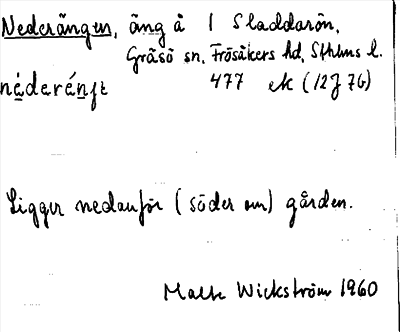 Nederängen, äng å 1 Sladdarön,
Gräsö sn, Frösåkers hd, Sthlms l.
477 ek (12J7G)
Ligger nedanför (söder om) gården.
Wickström 1960